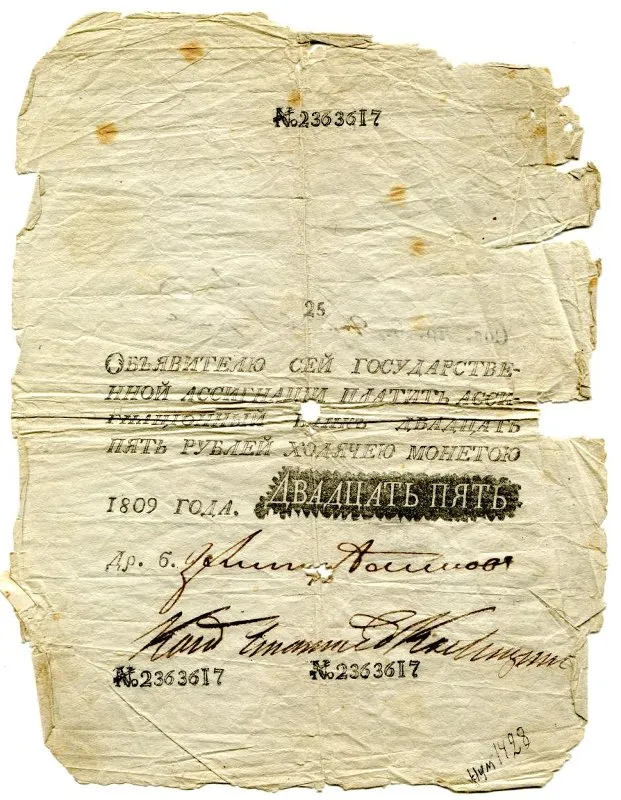 №2363617
25
ОБЪЯВИТЕЛЮ СЕЙ ГОСУДАРСТВЕ-
ННОЙ АССИГНАЦІИ ПЛАТИТЪ АССИ-
ГНАЦІОННЫЙ БАНКЪ ДВАДЦАТЬ
ПЯТЬ РУБЛЕЙ ХОДЯЧЕЮ МОНЕТОЮ
1809 ГОДА. ДВАДЦАТЬ ПЯТЬ
Др. б.
№2363617 №2363617
Нум 1428